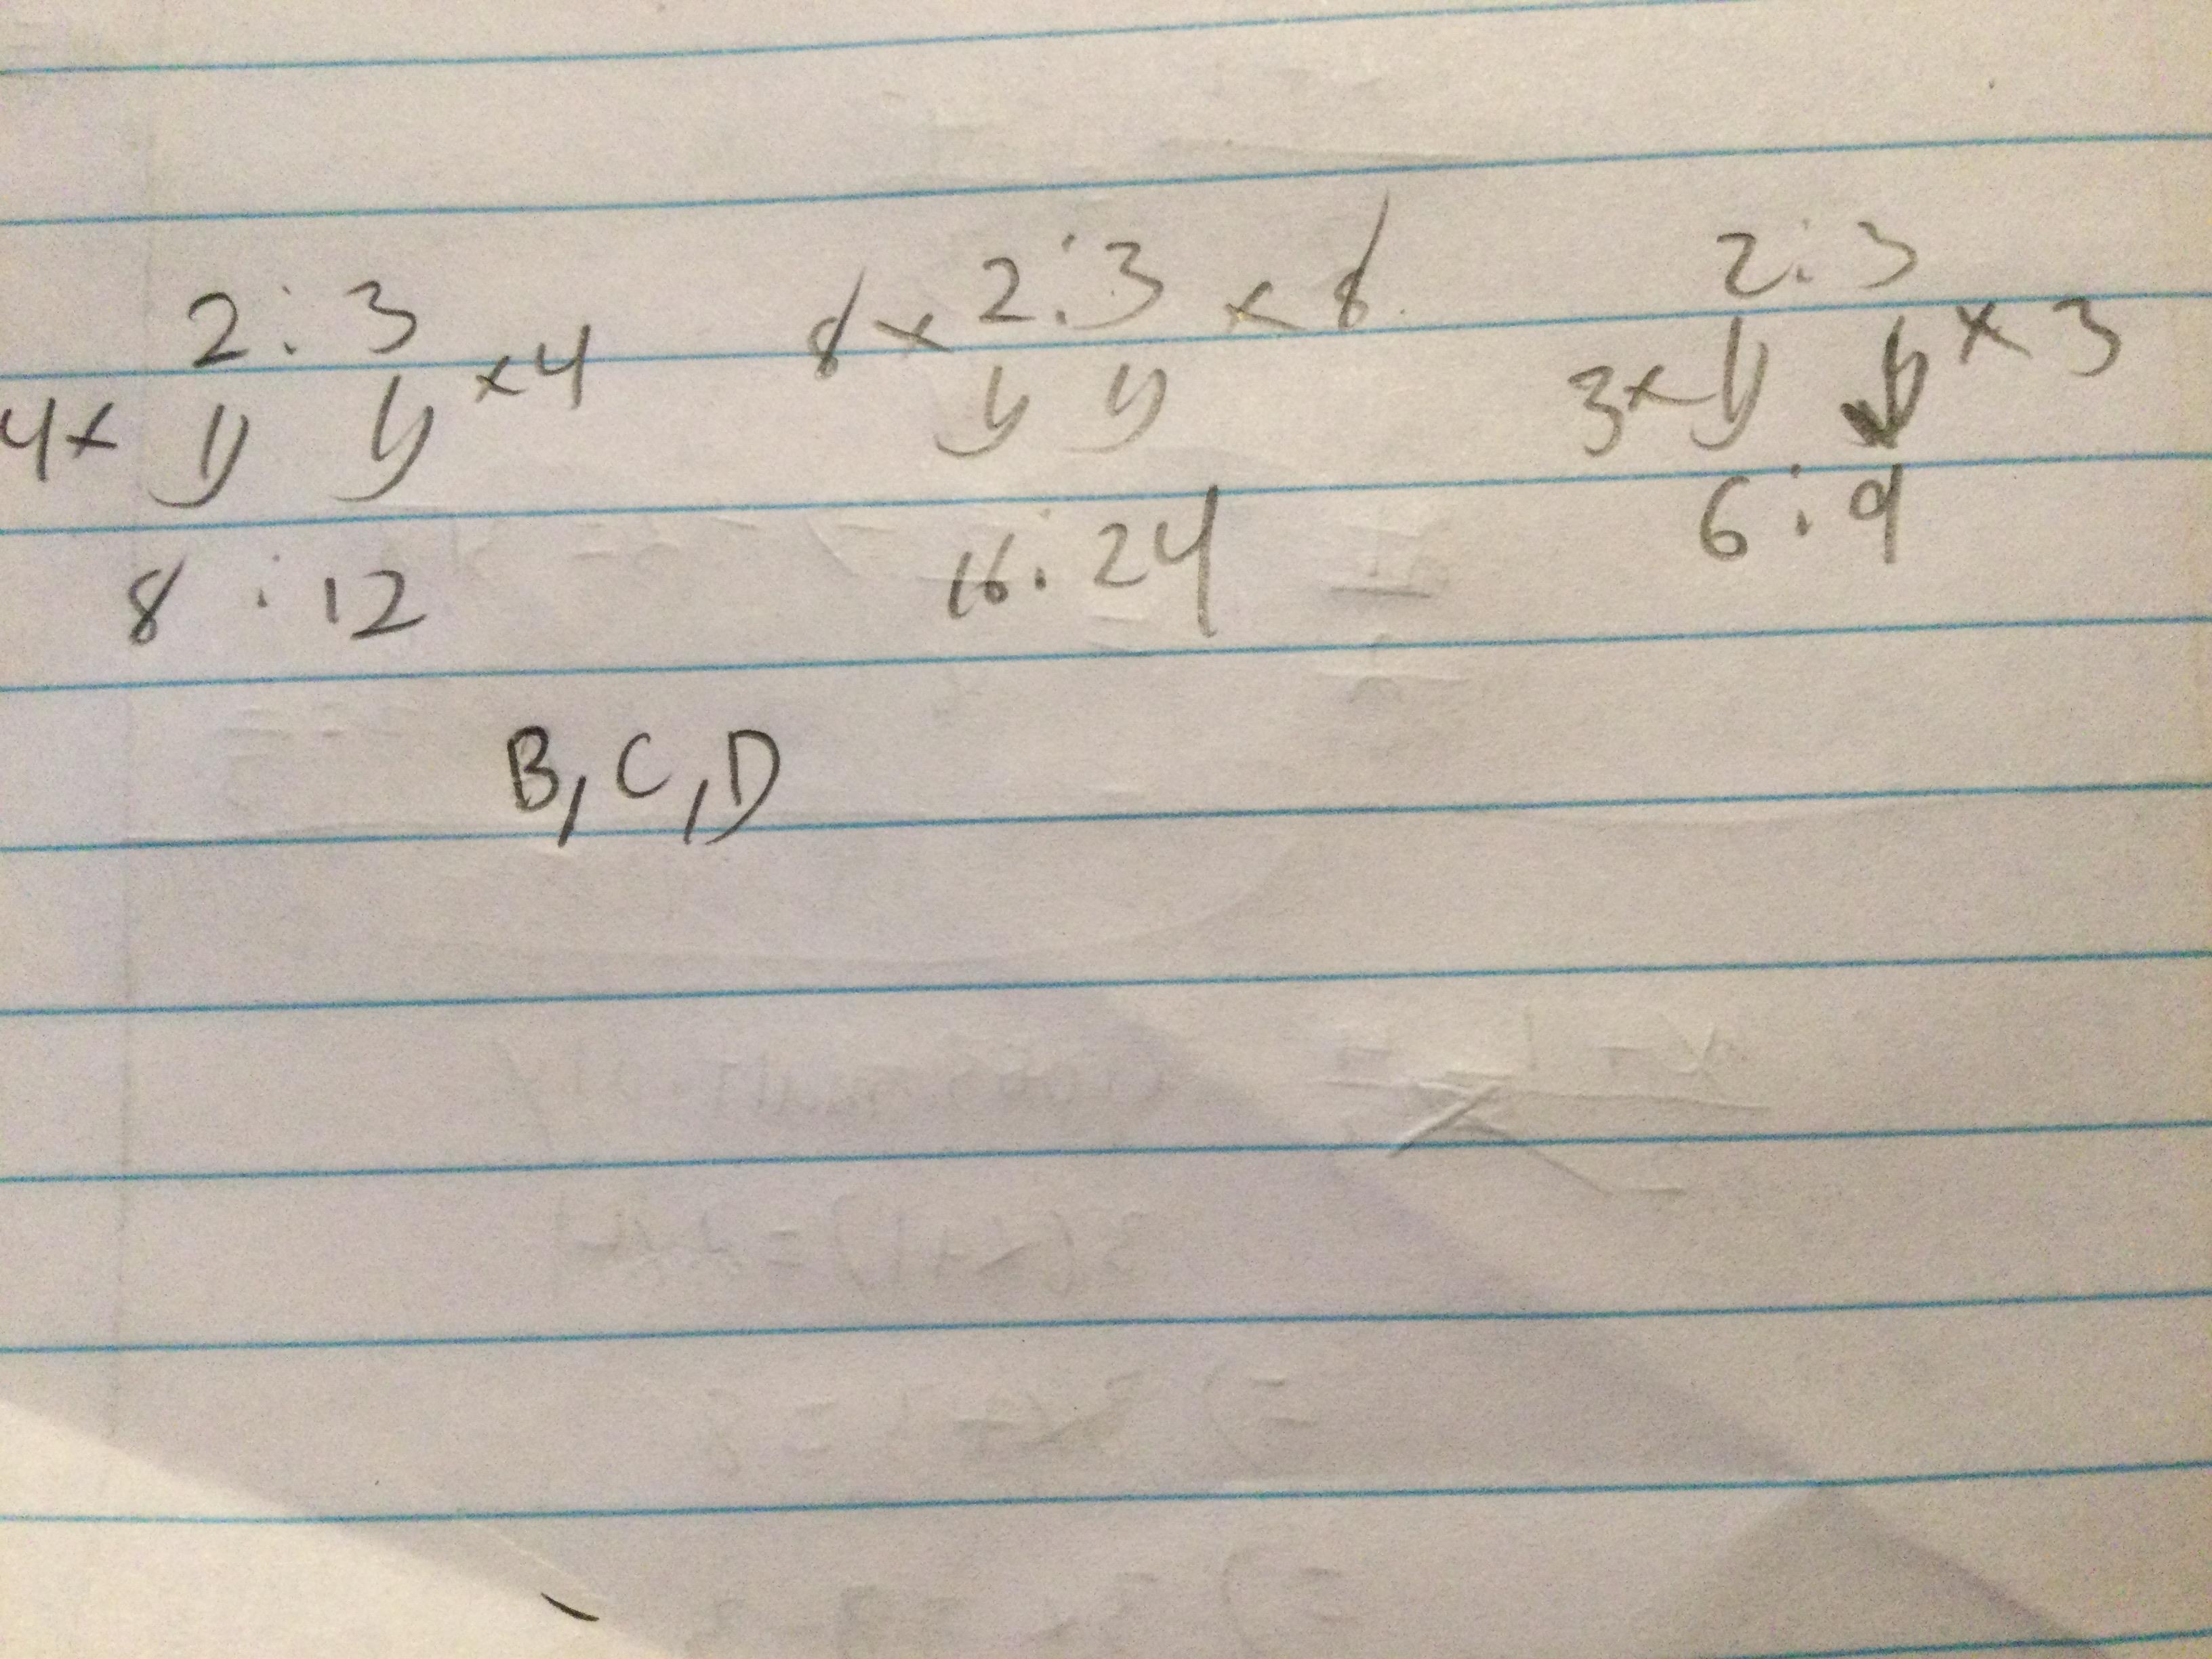 2 : 3 8 x 2 : 3 x 8 2 : 3
4 x x 4 3 x x 3
8 : 12 16 : 24 6 : 9
B, C, D